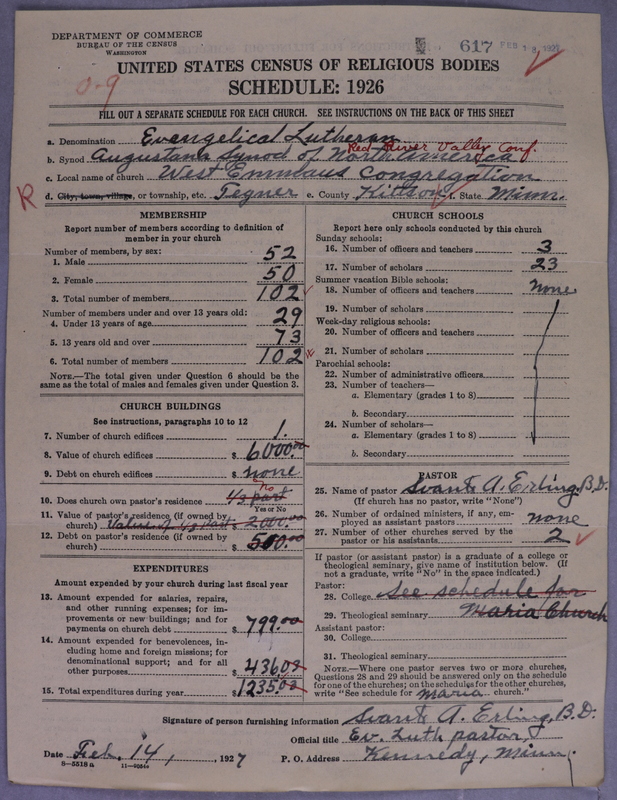 DEPARTMENT OF COMMERCE
BUREAU OF THE CENSUS
WASHINGTON
617 FEB 18 1927
UNITED STATES CENSUS OF RELIGIOUS BODIES
SCHEDULE: 1926
0-9
FILL OUT A SEPARATE SCHEDULE FOR EACH CHURCH. SEE INSTRUCTIONS ON THE BACK OF THIS SHEET
a. Denomination Evangelical Lutheran
Red River Valley Conf.
b. Synod Augustana Synod of North America
c. Local name of church West Emmaus Congregation
R
d. City, town, village, or township, etc. Tegner e. County Kittson f. State Minn.
MEMBERSHIP
Report number of members according to definition of
member in your church
Number of members, by sex:
1. Male 52
2. Female 50
3. Total number of members 102
Number of members under and over 13 years old:
4. Under 13 years of age 29
5. 13 years old and over 73
6. Total number of members 102
NOTE.—The total given under Question 6 should be the
same as the total of males and females given under Question 3.
CHURCH BUILDINGS
See instructions, paragraphs 10 to 12
7. Number of church edifices 1.
8. Value of church edifices $ 6000.00
9. Debt on church edifices $ none
10. Does church own pastor's residence 1/3 part no
Yes or No
11. Value of pastor's residence (if owned by
church) Value of 1/3 part $ 2000.00
12. Debt on pastor's residence (if owned by
church) $ 500.00
EXPENDITURES
Amount expended by church during last fiscal year
13. Amount expended for salaries, repairs,
and other running expenses; for im-
provements or new buildings; and for
payments on church debt $ 799.00
14. Amount expended for benevolences, in-
cluding home and foreign missions; for
denominational support; and for all
other purposes $ 436.00
15. Total expenditures during year $ 1235.00
CHURCH SCHOOLS
Report here only schools conducted by this church
Sunday schools:
16. Number of officers and teachers 3
17. Number of scholars 23
Summer vacation Bible schools:
18. Number of officers and teachers none
19. Number of scholars
Week-day religious schools:
20. Number of officers and teachers
21. Number of scholars
Parochial schools:
22. Number of administrative officers
23. Number of teachers—
a. Elementary (grades 1 to 8)
b. Secondary
24. Number of scholars—
a. Elementary (grades 1 to 8)
b. Secondary
PASTOR
25. Name of pastor Svant A. Erling, B.D.
(If church has no pastor, write "None")
26. Number of ordained ministers, if any, em-
ployed as assistant pastors none
27. Number of other churches served by the
pastor or his assistants 2
If pastor (or assistant pastor) is a graduate of a college or
theological seminary, give name of institution below. (If
not a graduate, write "No" in the space indicated.)
Pastor:
28. College See schedule for
29. Theological seminary Maria Church
Assistant pastor:
30. College
31. Theological seminary
NOTE.—Where one pastor serves two or more churches,
Questions 28 and 29 should be answered only on the schedule
for one of the churches; on the schedules for the other churches,
write "See schedule for Maria church."
Signature of person furnishing information Svant A. Erling, B.D.
Official title Ev. Luth pastor
Date Feb. 14, 1927 P. O. Address Kennedy, Minn.
8-5518a